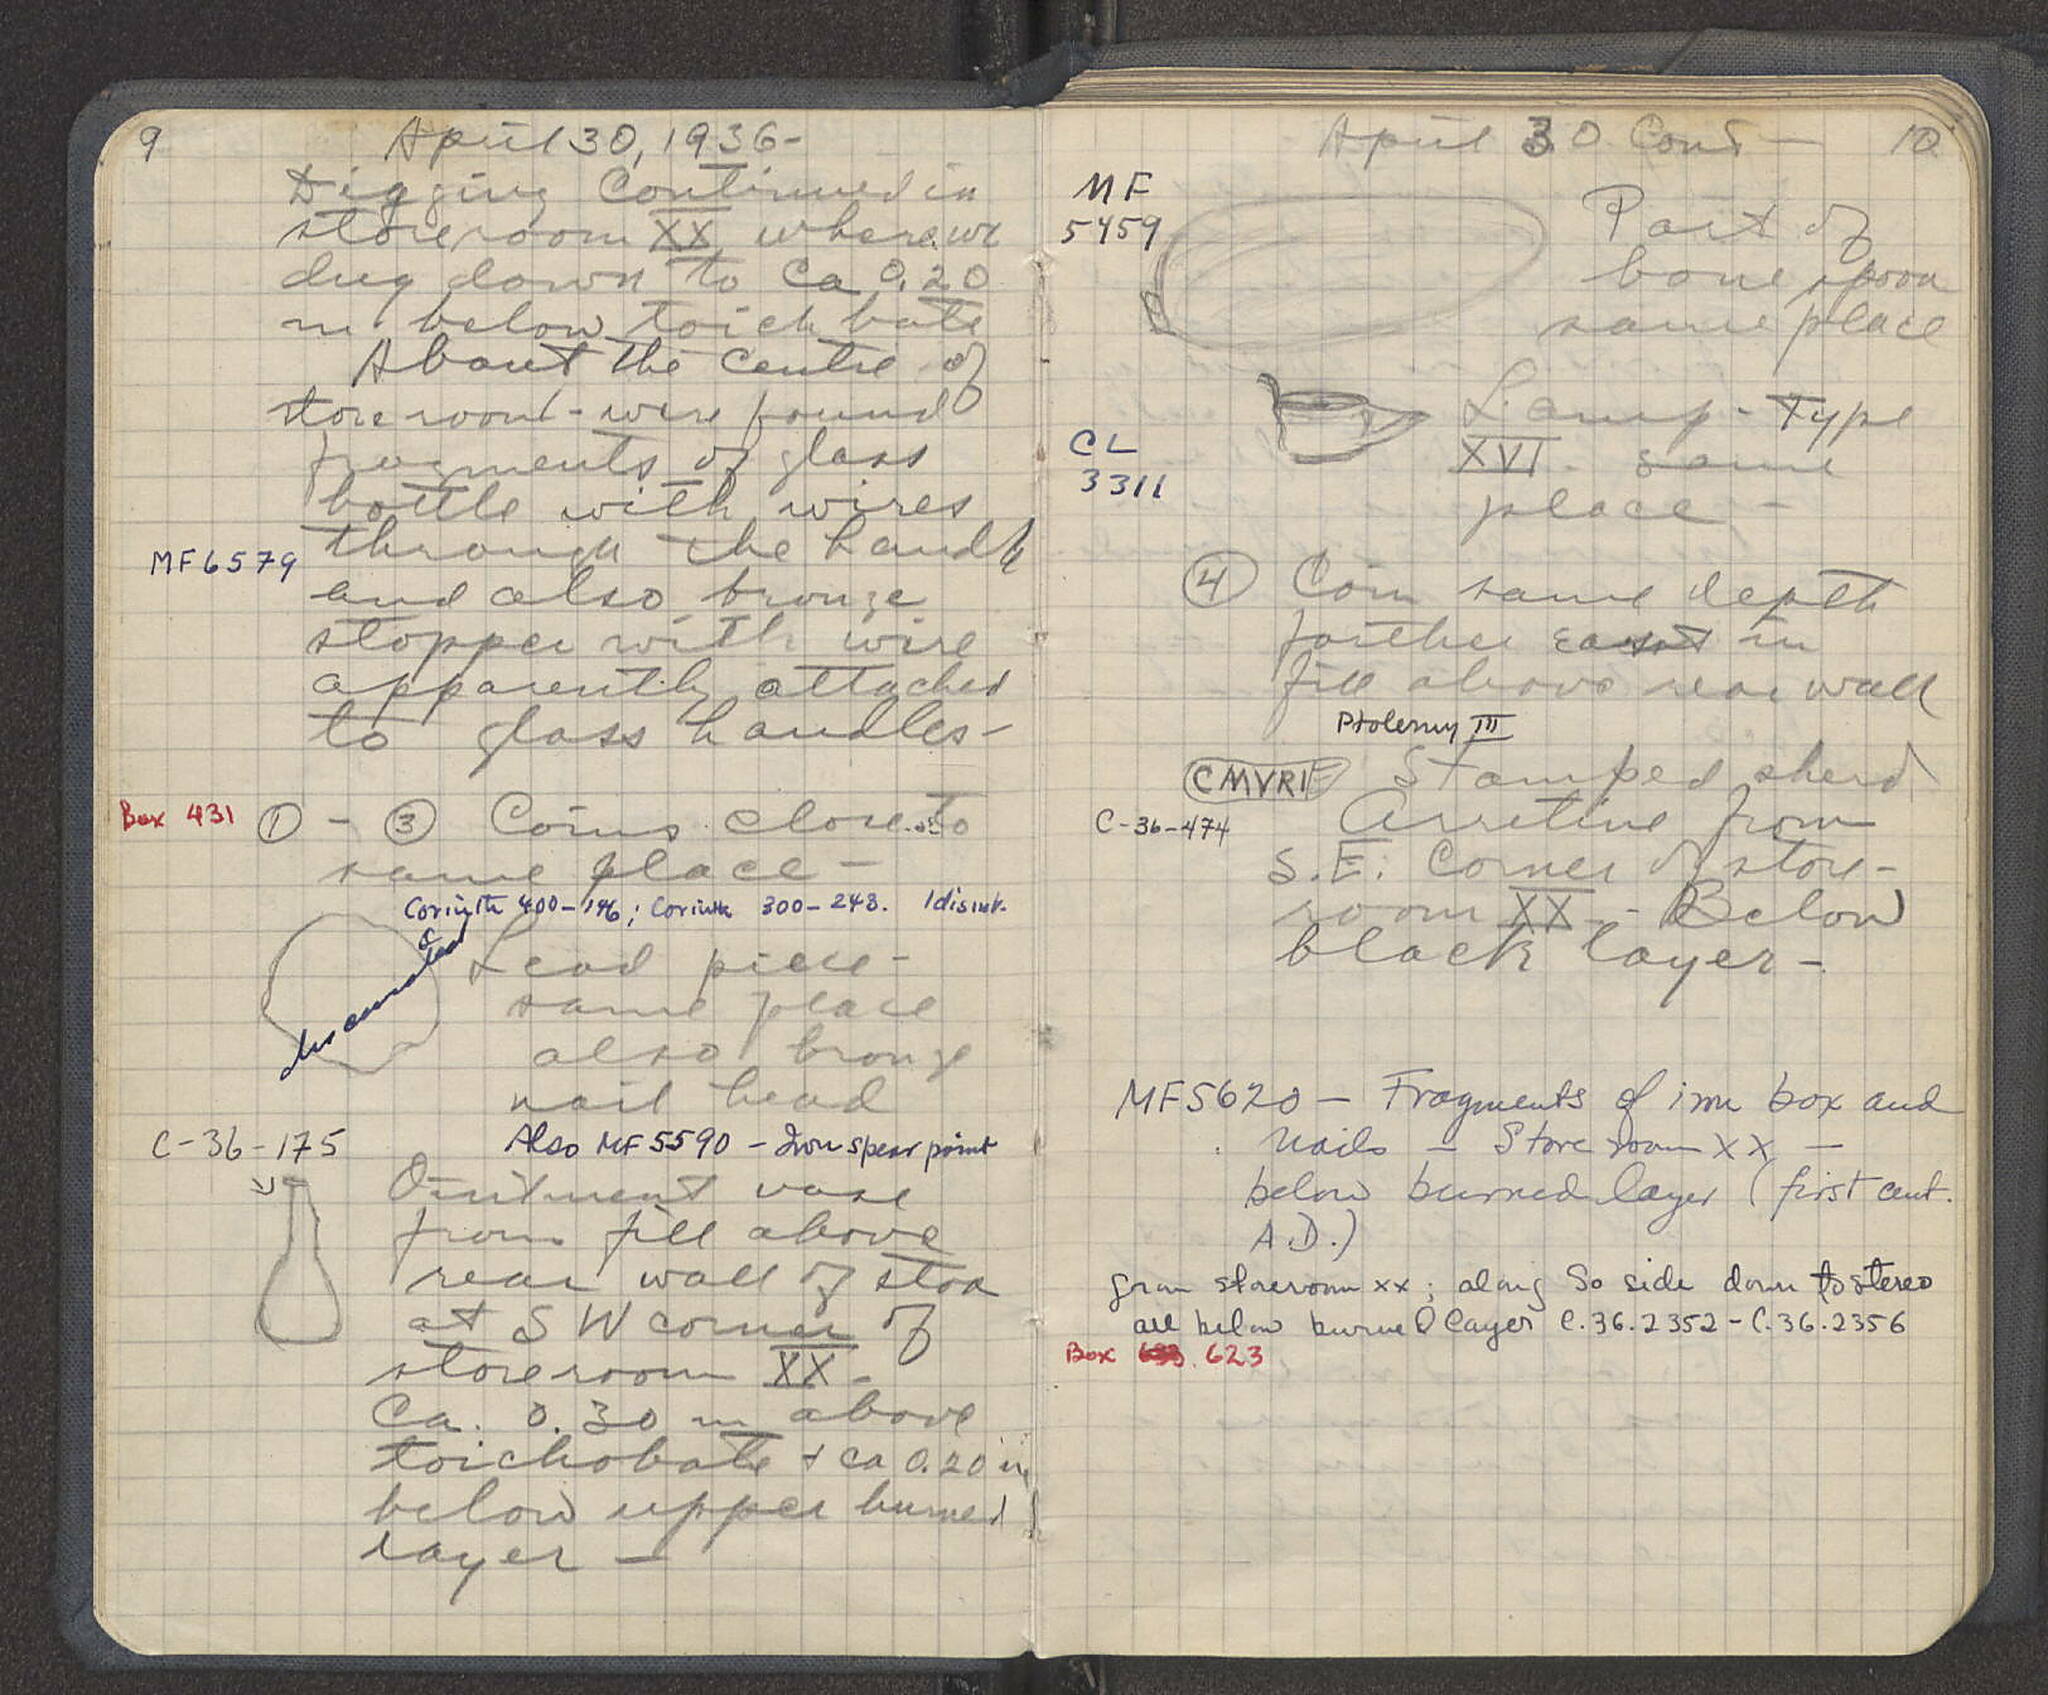 9
April 30, 1936-
Digging continued in
storeroom XX where we
dug down to ca 0.20
m. below toichobate
About the centre of
storeroom - were found
fragments of glass
bottle with wires
through the handle
MF6579
and also bronze
stopper with wire
apparently attached
to glass handles-
Box 431
① - ③ Coins close to
same place -
Corinth 400-146; Corinth 300-243. 1 disint.
discarded
Lead piece-
same place
also bronze
nail head
Also MF5590 - Iron spear point
C-36-175
Ointment vase
from fill above
rear wall of stoa
at SW corner of
storeroom XX-
Ca. 0.30 m above
toichobate + ca 0.20 m
below upper burned
layer -
April 30 Cont - 10
MF
5459
Part of
bone spoon
same place
CL
3311
Lamp - Type
XVI - same
place -
④ Coin same depth
farther east in
fill above rear wall
Ptolemy III
CMVRI Stamped sherd
C-36-474
Arretine from
S.E. Corner of store-
room XX - Below
black layer -
MF5620 - Fragments of iron box and
nails - Storeroom XX -
below burned layer (first cent.
A.D.)
from storeroom xx; along So side down to stereo
all below burned layer C.36.2352 - C.36.2356
Box 623